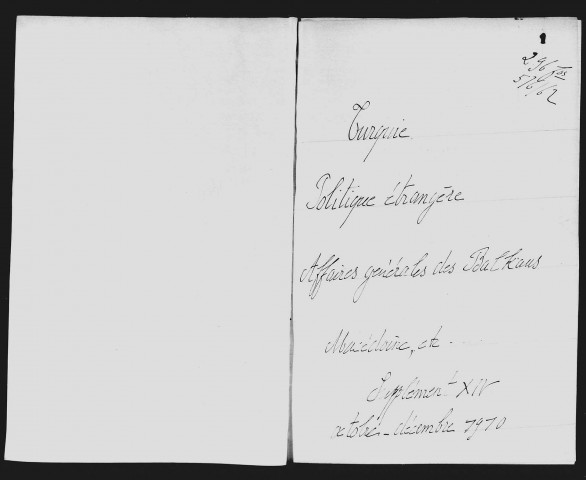 296 fos
576/62
Turquie.
Politique étrangère
Affaires générales des Balkans
Macédoine, etc.
Supplément XIV
octobre-décembre 1910